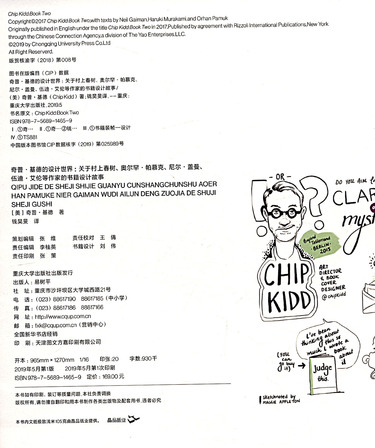 Chip Kidd:Book Two
Copyright©2017 Chip Kidd:Book Two,with texts by Neil Gaiman,Haruki Murakami,and Orhan Pamuk
Originally published in English under the title Chip Kidd:Book Two in 2017,Published by agreement with Rizzoli International Publications,New York
through the Chinese Connection Agency,a division of The Yao Enterprises,LLC.
©2019 by Chongqing University Press Co.Ltd
All Right Reserverd.
版贸核渝字(2018)第008号
图书在版编目(CIP)数据
奇普·基德的设计世界:关于村上春树、奥尔罕·帕慕克、
尼尔·盖曼、伍迪·艾伦等作家的书籍设计故事/
(美)奇普·基德(Chip Kidd)著;钱昊旻译.--重庆:
重庆大学出版社,2019.5
书名原文:Chip Kidd:Book Two
ISBN 978-7-5689-1465-9
中国版本图书馆CIP数据核字(2019)第025989号
奇普·基德的设计世界:关于村上春树、奥尔罕·帕慕克、尼尔·盖曼、
伍迪·艾伦等作家的书籍设计故事
QIPU JIDE DE SHEJI SHIJIE GUANYU CUNSHANGCHUNSHU AOER
HAN PAMUKE NIER GAIMAN WUDI AILUN DENG ZUOJIA DE SHUJI
SHEJI GUSHI
[美]奇普·基德 著
钱昊旻 译
策划编辑 张 维 责任校对 王 倩
责任编辑 李桂英 书籍设计 刘 伟
责任印制 张 策
重庆大学出版社出版发行
出版人:易树平
社 址:重庆市沙坪坝区大学城西路21号
电 话:(023) 88617190 88617185(中小学)
传 真:(023) 88617186 88617166
网 址:http://www.cqup.com.cn
邮 箱:fxk@cqup.com.cn(营销中心)
全国新华书店经销
印 刷:天津图文方嘉印刷有限公司
开本:965mm×1270mm 1/16 印张:20 字数:930千
2019年5月第1版 2019年5月第1次印刷
ISBN 978-7-5689-1465-9 定价:169.00元
本书如有印刷、装订等质量问题,本社负责调换
版权所有,请勿擅自翻印和用本书制作各类出版物及配套用书,违者必究
- OR -
DO YOU AIM
CLAR
myst
Brand
Talks
BERLIN
2015
CHIP
KIDD
ART
DIRECTOR
& BOOK
COVER
DESIGNER
@chipkidd
I've been
thinking about
this so
much, I wrote a
book about
it
(YOU
can go
buy it)
Judge
this.
sketchnoted by
MAGGIE APPLETON